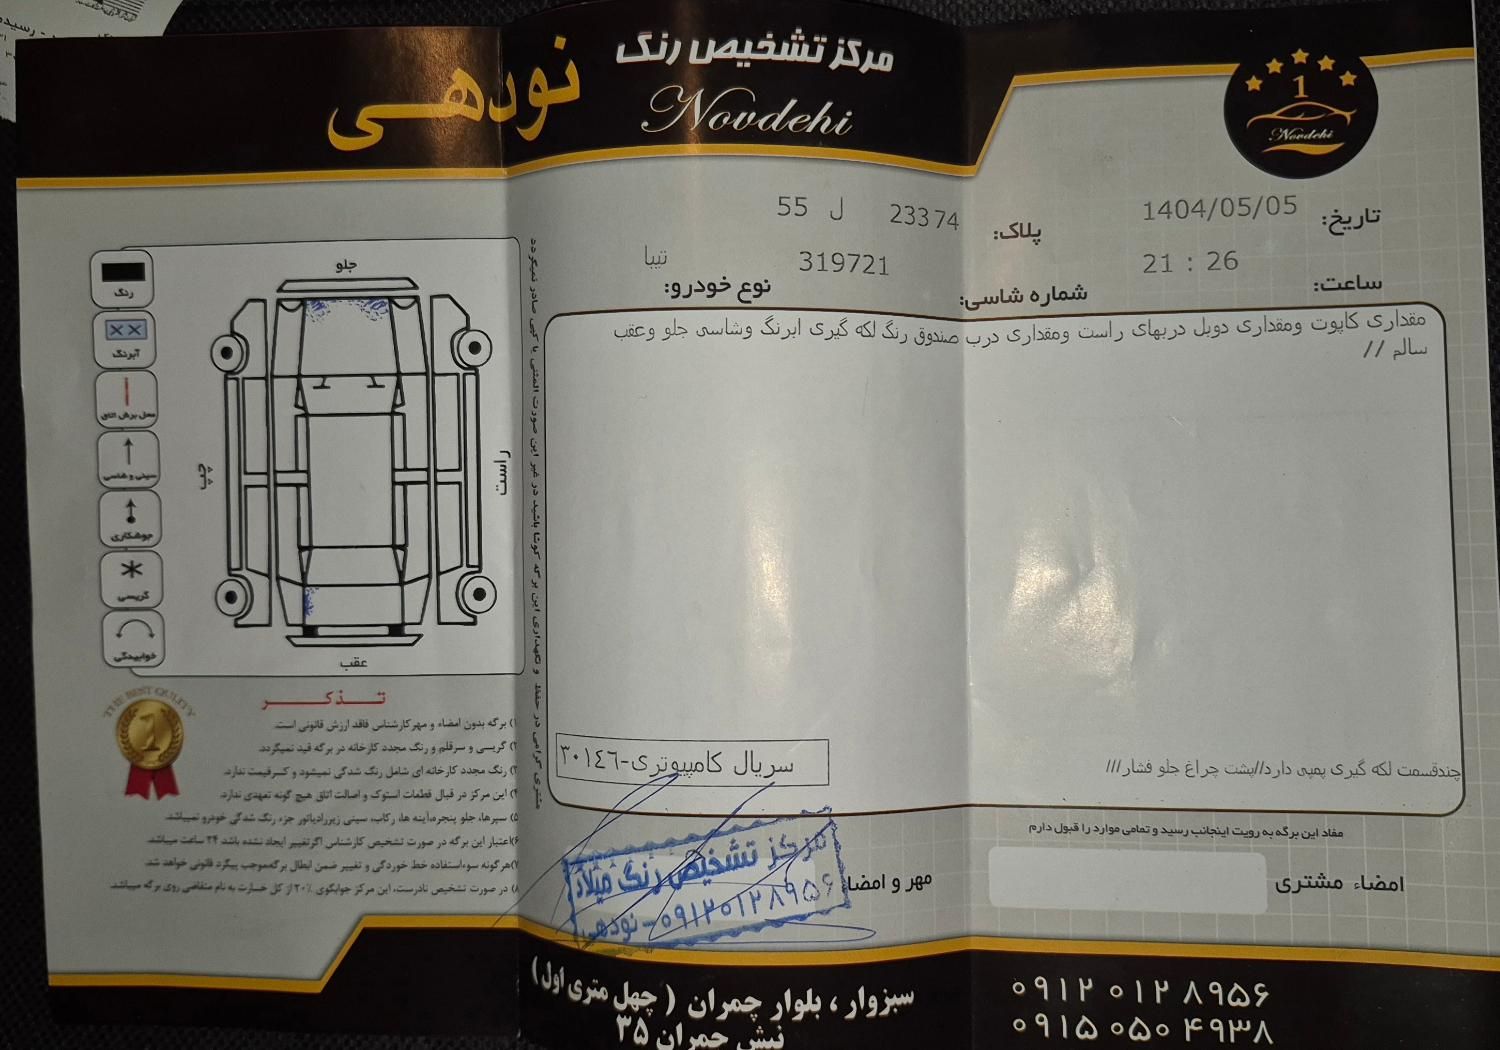 مرکز تشخیص رنگ
نودهی
Novdehi
1
Novdehi
تاریخ: 1404/05/05
پلاک: 23374 ل 55
ساعت: 21 : 26
شماره شاسی: 319721
نوع خودرو: تیبا
مقداری کاپوت ومقداری دوبل دربهای راست ومقداری درب صندوق رنگ لکه گیری ابرنگ وشاسی جلو وعقب
سالم //
چندقسمت لکه گیری پمپی دارد//پشت چراغ جلو فشار///
سریال کامپیوتری-۳۰۱٤٦
رنگ
آبرنگ
محل برش اتاق
سینی و شاسی
جوشکاری
گریسی
خوابیدگی
جلو
چپ
راست
عقب
مشتری گرامی در حفظ و نگهداری این برگه کوشا باشید در غیر این صورت المثنی یا کپی صادر نمیگردد
THE BEST QULITY
1
تذکر
۱) برگه بدون امضاء و مهر کارشناس فاقد ارزش قانونی است.
۲) گریسی و سرقلم و رنگ مجدد کارخانه در برگه قید نمیگردد.
۳) رنگ مجدد کارخانه ای شامل رنگ شدگی نمیشود و کسر قیمت ندارد.
۴) این مرکز در قبال قطعات استوک و اصالت اتاق هیچ گونه تعهدی ندارد.
۵) سپرها، جلو پنجره،آینه ها، رکاب، سینی زیررادیاتور جزء رنگ شدگی خودرو نمیباشد.
۶)اعتبار این برگه در صورت تشخیص کارشناس اگرتغییر ایجاد نشده باشد ۲۴ ساعت میباشد.
۷)هرگونه سوءاستفاده خط خوردگی و تغییر ضمن ابطال برگه،موجب پیگرد قانونی خواهد شد.
۸) در صورت تشخیص نادرست، این مرکز جوابگوی ۲۰٪ از کل خسارت به نام متقاضی روی برگه میباشد.
مفاد این برگه به رویت اینجانب رسید و تمامی موارد را قبول دارم
امضاء مشتری
مهر و امضا
مرکز تشخیص رنگ میلاد
۰۹۱۲۰۱۲۸۹۵۶-نودهی
سبزوار ، بلوار چمران ( چهل متری اول )
نبش چمران ۳۵
۰۹۱۲ ۰۱۲ ۸۹۵۶
۰۹۱۵ ۰۵۰ ۴۹۳۸